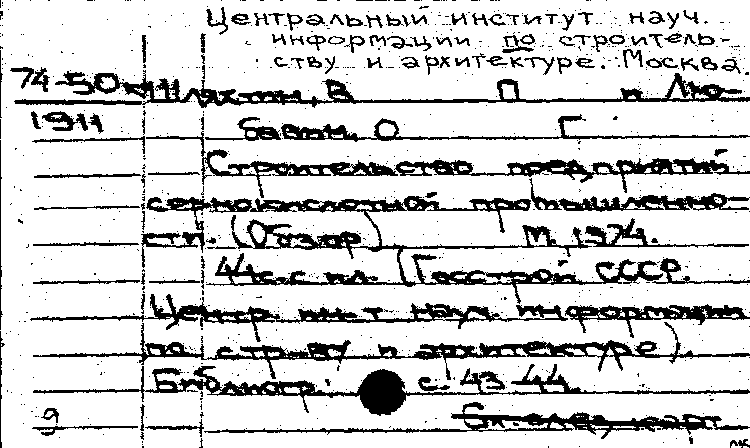 Центральный институт науч.
информации по строитель-
ству и архитектуре. Москва.
74-50
Шляхтин, В П и Лю-
1911
бавин, О Г
Строительство предприятий
сернокислотной промышленно-
сти. (Обзор) М., 1974.
44 с. с ил. (Госстрой СССР.
Центр. ин-т науч. информации
по стр-ву и архитектуре).
Библиогр.: с. 43-44
9 См. след. карт.